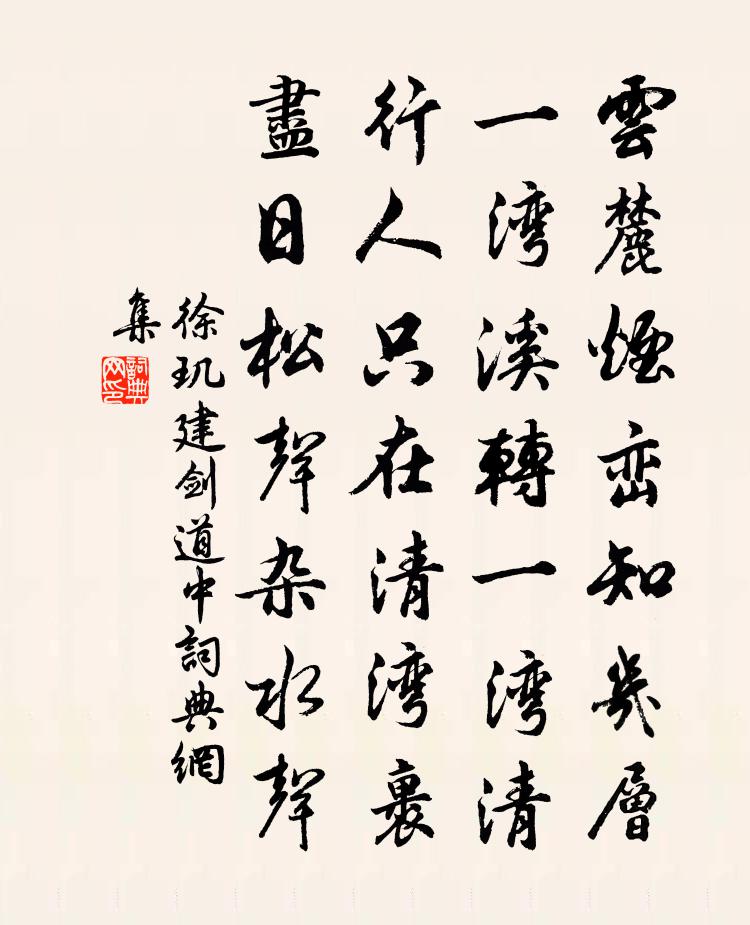 雲麓煙巒知幾層
一湾溪轉一湾清
行人只在清湾裏
盡日松聲杂水聲
徐玑建剑道中詞典網
集
詞典网印